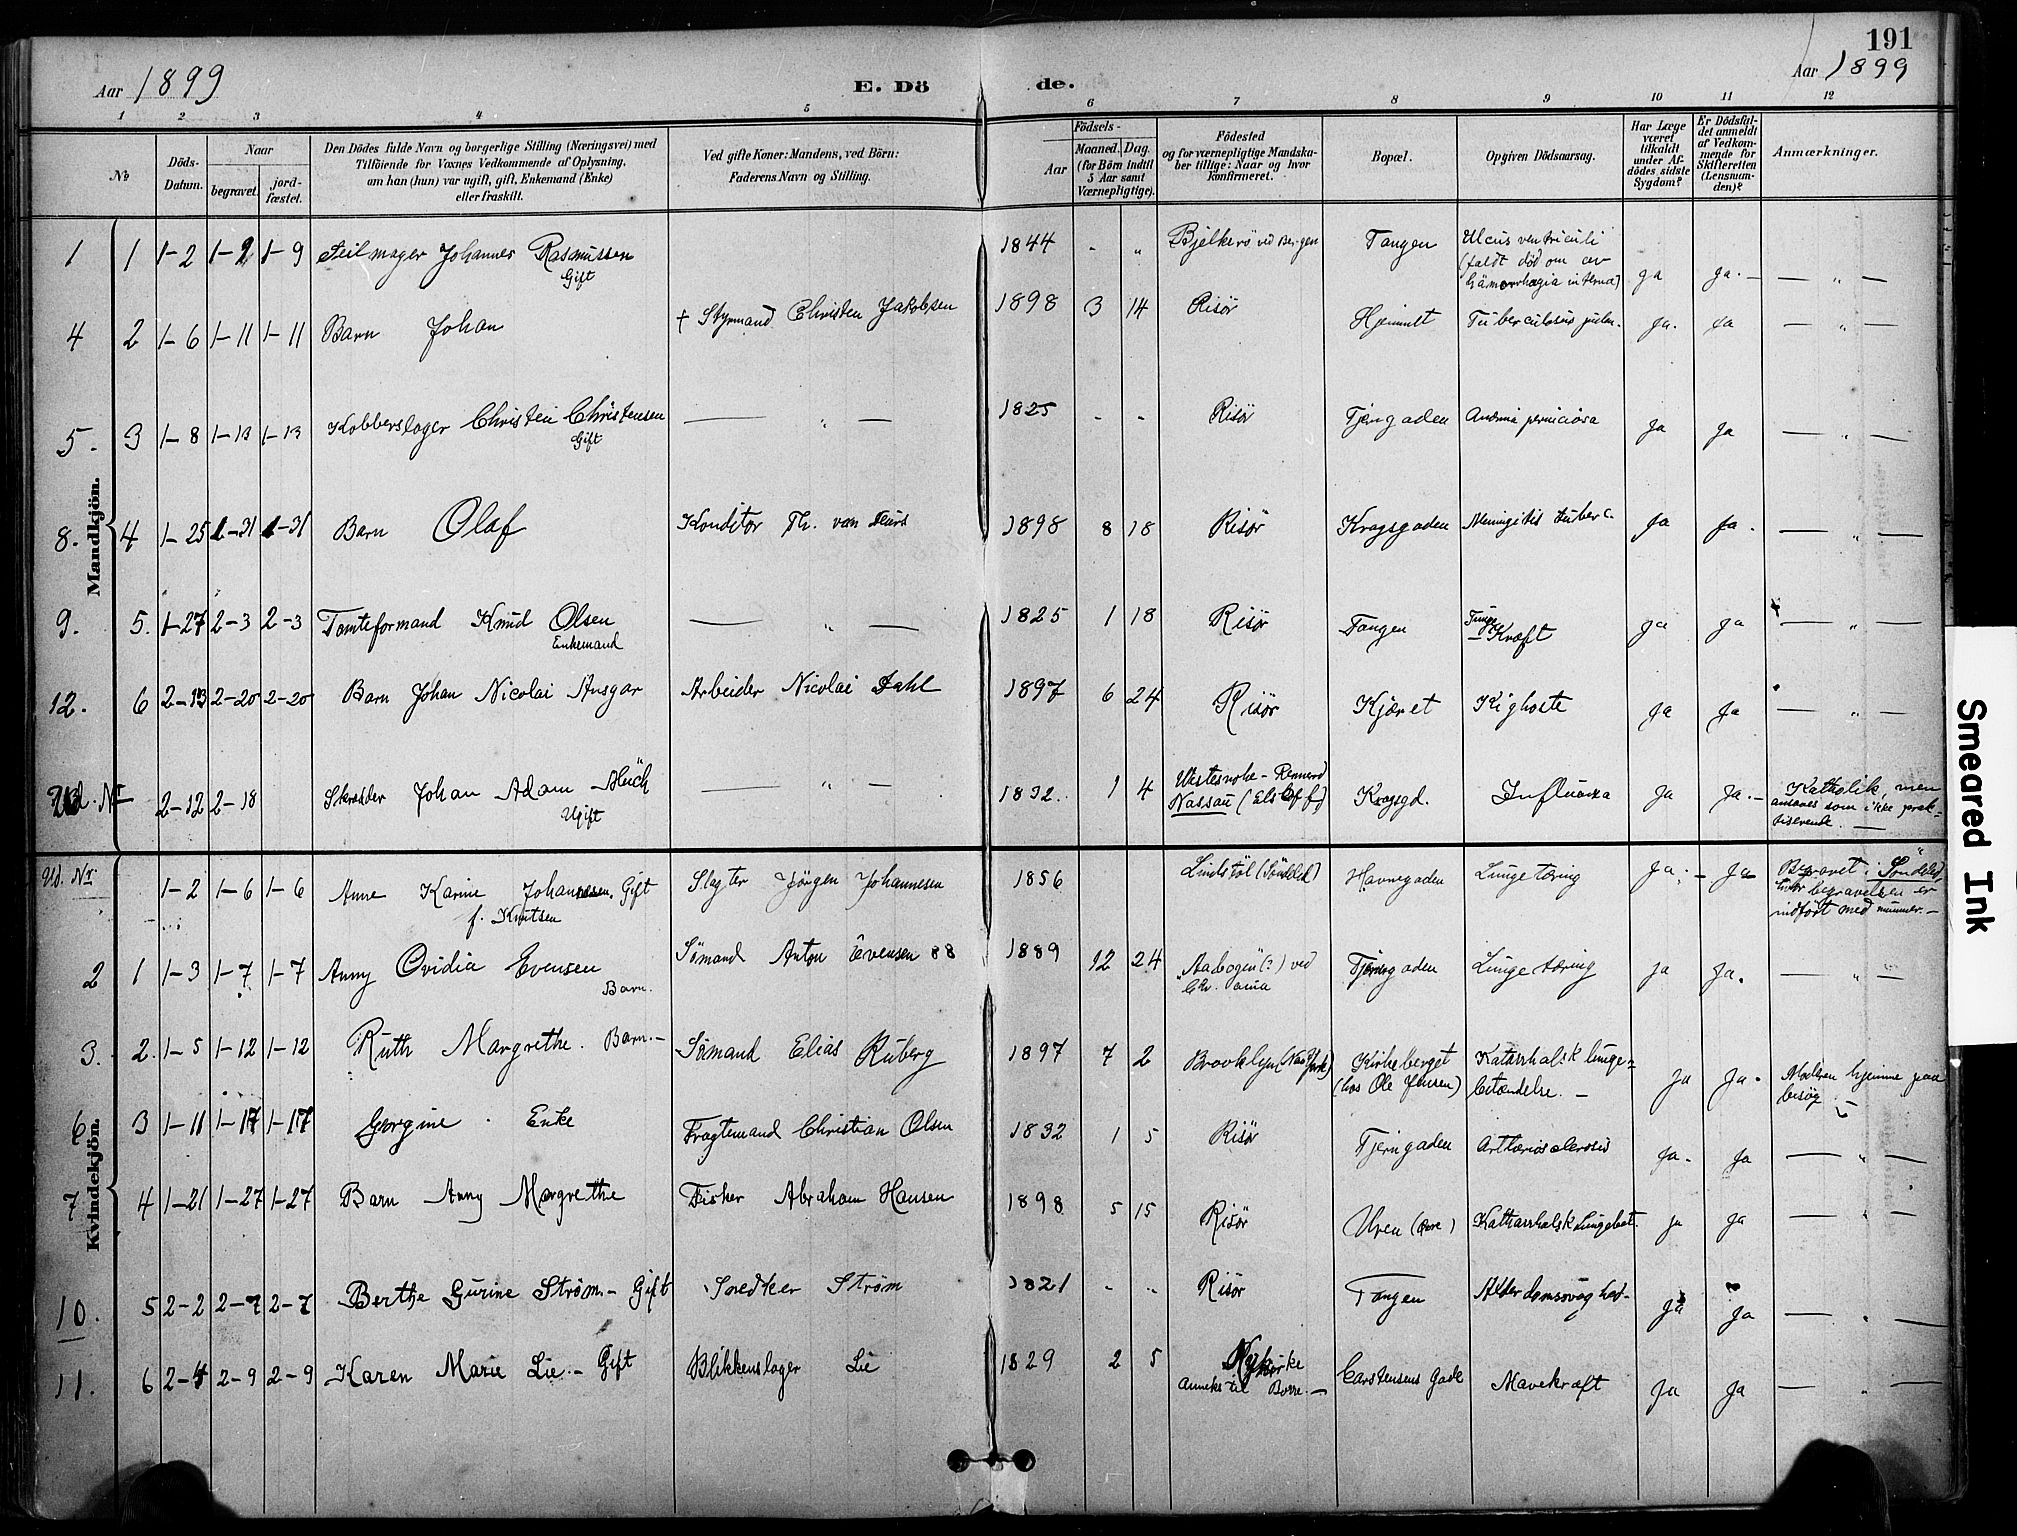 191
Aar 1899
E. Dö
de.
Aar 1899
1 2 3 4 5 6 7 8 9 10 11 12
No
Döds-
Datum.
Naar
begravet.
jord-
fæstet.
Den Dödes fulde Navn og borgerlige Stilling (Næringsvei) med
Tilföiende for Voxnes Vedkommende af Oplysning,
om han (hun) var ugift, gift, Enkemand (Enke)
eller fraskilt.
Ved gifte Koner: Mandens, ved Börn:
Faderens Navn og Stilling.
Födsels-
Aar
Maaned. Dag.
(for Börn indtil
5 Aar samt
Værnepligtige).
Födested
og for værnepligtige Mandska-
ber tillige: Naar og hvor
konfirmeret.
Bopæl.
Opgiven Dödsaarsag.
Har Læge
været
tilkaldt
under Af-
dödes sidste
Sygdom?
Er Dödsfal-
det anmeldt
af Vedkom-
mende for
Skifteretten
(Lensman-
den)?
Anmærkninger.
Mandkjön.
1 1 1-2 1-9 1-9 Seilmager Johannes Rasmussen
Gift
1844 - " Bjelkerö ved Bergen Tangen Ulcus ventriculi
(faldt död om av
hämorrhagia interna) ja ja. — " —
4 2 1-6 1-11 1-11 Barn Johan † Styrmand Christen Jakobsen 1898 3 14 Risör Hjemmet Tuberculosis pulm. ja. ja — " —
5. 3 1-8 1-13 1-13 Kobberslager Christen Christensen
Gift
— " — 1825 - - Risör Tjerngaden Anæmia perniciosa ja ja — " —
8. 4 1-25 1-31 1-31 Barn Olaf Konditor Th. van Deurs 1898 8 18 Risör Kragsgaden Meningitis tuberc. ja ja. — " —
9. 5. 1-27 2-3 2-3 Tomteformand Knud Olsen
Enkemand
— " — 1825 1 18 Risör Tangen Tunge
- Kræft ja ja — " —
12. 6 2-13 2-20 2-20 Barn Johan Nicolai Ansgar Arbeider Nicolai Dahl 1897 6 24 Risör Kjæret Kighoste ja ja — " —
Ud. Nr 2-12 2-18 Skræder Johan Adam
Ugift
— " — 1832. 1 4
Nassau Kragsgd. Influenza ja ja. — Katholik, men
ansaaes som ikke prak=
tiserende. —
Kvindekjön.
Ud. Nr. 1-2 1-6 1-6 Anne Karine Johannesen. Gift
f. Knutsen
Slagter Jörgen Johannesen 1856 Lindstöl (Söndeled) Havnegaden Lungetæring ja. - ja Begravet i Söndeled,
hvor begravelsen er
indfört med nummer. —
2 1 1-3 1-7 1-7 Anny Ovidia Evensen
Barn.
Sömand Anton Evensen 88 1889 12 24 Aabogen (?) ved
Chr.ania Tjerngaden Lungetæring ja ja. — " —
3. 2. 1-5 1-12 1-12 Ruth Margrethe. Barn. — Sömand Elias Ruberg 1897 7 2 Brooklyn (New York) Kirkeberget
(hos Ole Jensen) Katarrhalsk lunge=
betændelse. — ja ja. Moderen hjemme paa
besög
6 3 1-11 1-17 1-17 Gorgine. Enke Fragtemand Christian Olsen 1832 1 5 Risör Tjerngaden Arthæriosclerosis ja. ja — " —
7 4 1-21 1-27 1-27 Barn Anny Margrethe Fisker Abraham Hansen 1898 5 15 Risör Uren Kattarrhalsk Lungebet. ja ja — " —
10. 5 2-2 2-7 2-7 Berthe Gurine Ström — Gift Snedker Ström 1821 - " Risör Tangen Alderdomssvaghed. ja ja — " —
11. 6 2-4 2-9 2-9 Karen Marie Lie — Gift Blikkenslager Lie 1829 2 5 Nykirke
Anneks til Borre. — Carstensens Gade Mavekræft ja ja — " —
Smeared Ink